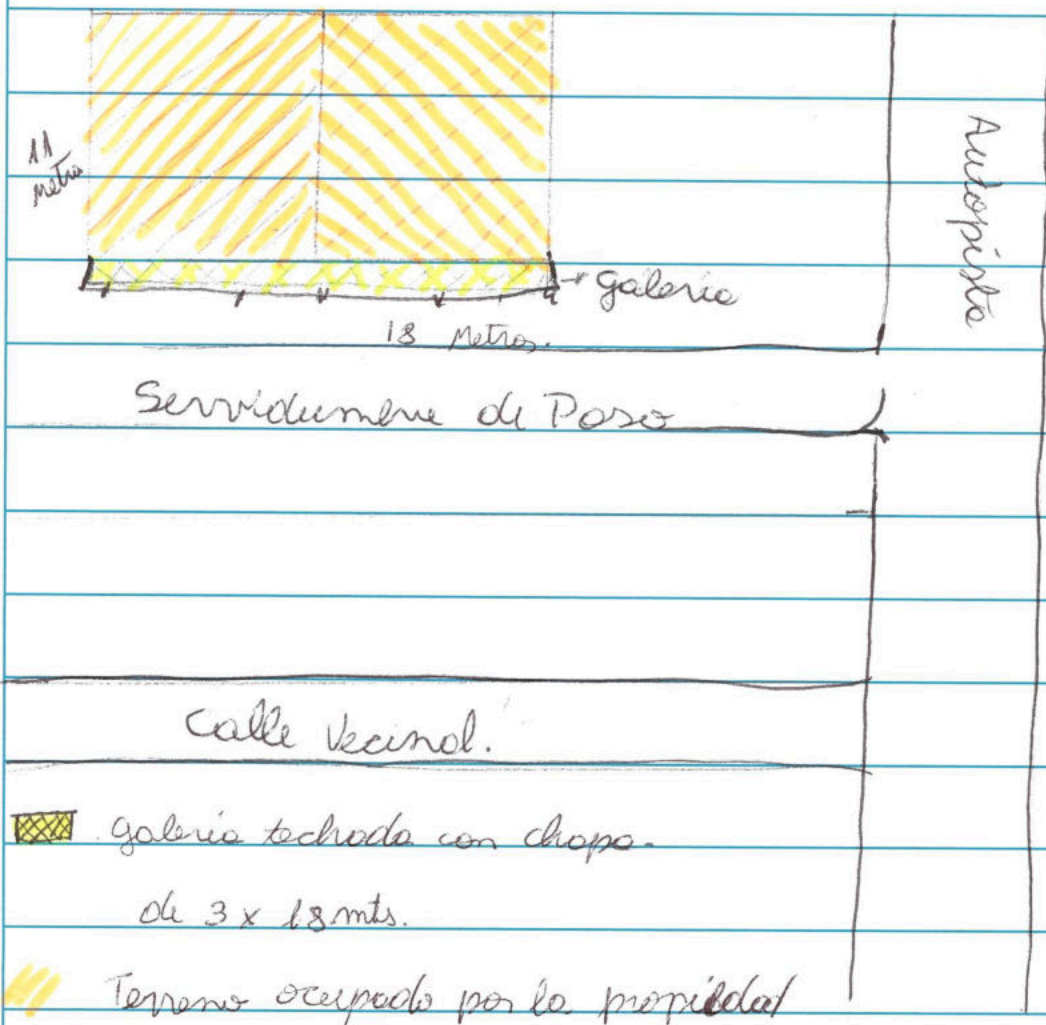 11
metros
Autopista
galeria
18 Metros.
Servidumbre de Paso
Calle Vecinal.
galeria techada con chapa.
de 3 x 18 mts.
Terreno ocupado por la propiedad